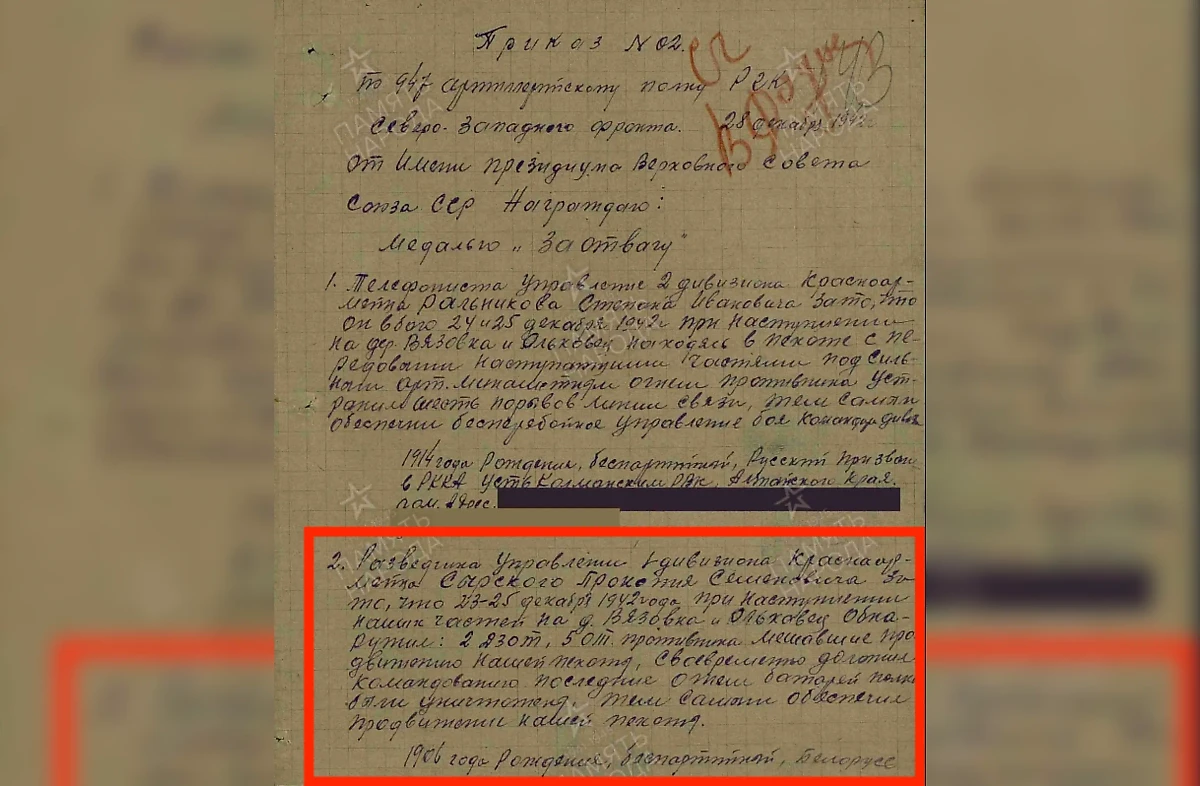 Приказ № 02.
По 947 артиллерийскому полку РГК
Северо-Западного фронта. 28 декабря 1942г
От Имени президиума Верховного Совета
Союза ССР Награждаю:
Медалью „За отвагу"
1. Телефониста Управление 2 дивизиона Красноар-
мейца Ральникова Степана Ивановича За то, что
он в бою 24 и 25 декабря 1942г при наступлении
на дер. Вязовка и Ольховец находясь в пехоте с пе-
редовыми наступающими частями под силь-
ным арт. огнем противника Уст-
ранил шесть порывов линии связи, тем самым
обеспечил бесперебойное управление боя командир дивиз
1914 года Рождения, беспартийный, Русский призван
в РККА Усть Калманским РВК, Алтайского Края.
адрес.
2. Разведчика Управления 1 дивизиона Красноар-
мейца Сырского Прокопия Семеновича За
то, что 23-25 декабря 1942 года при наступлении
наших частей на д. Вязовка и Ольховец Обна-
ружил: 2 Дзот, 5 от. противника мешавшие про
движению нашей пехоты, Своевременно доложил
Командованию последние огнем батарей полка
были уничтожены. Тем самым обеспечил
продвижение нашей пехоты.
1906 года Рождения, беспартийный, Белорусс
ПАМЯТЬ НАРОДА
ПАМЯТЬ НАРОДА
ПАМЯТЬ НАРОДА
ПАМЯТЬ НАРОДА
ПАМЯТЬ НАРОДА
ПАМЯТЬ НАРОДА